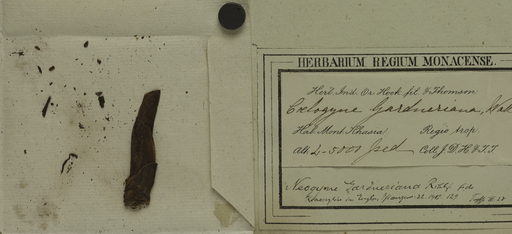 HERBARIUM REGIUM MONACENSE.
Herb. Ind. Or. Hook. fil. & Thomson
Coelogyne Gardneriana, Wall
Hab. Mont. Khasia Regio trop.
alt. 2-5000 ped. Coll. J. D. H. & T. T.
Neogyne Gardneriana Rchb. f.